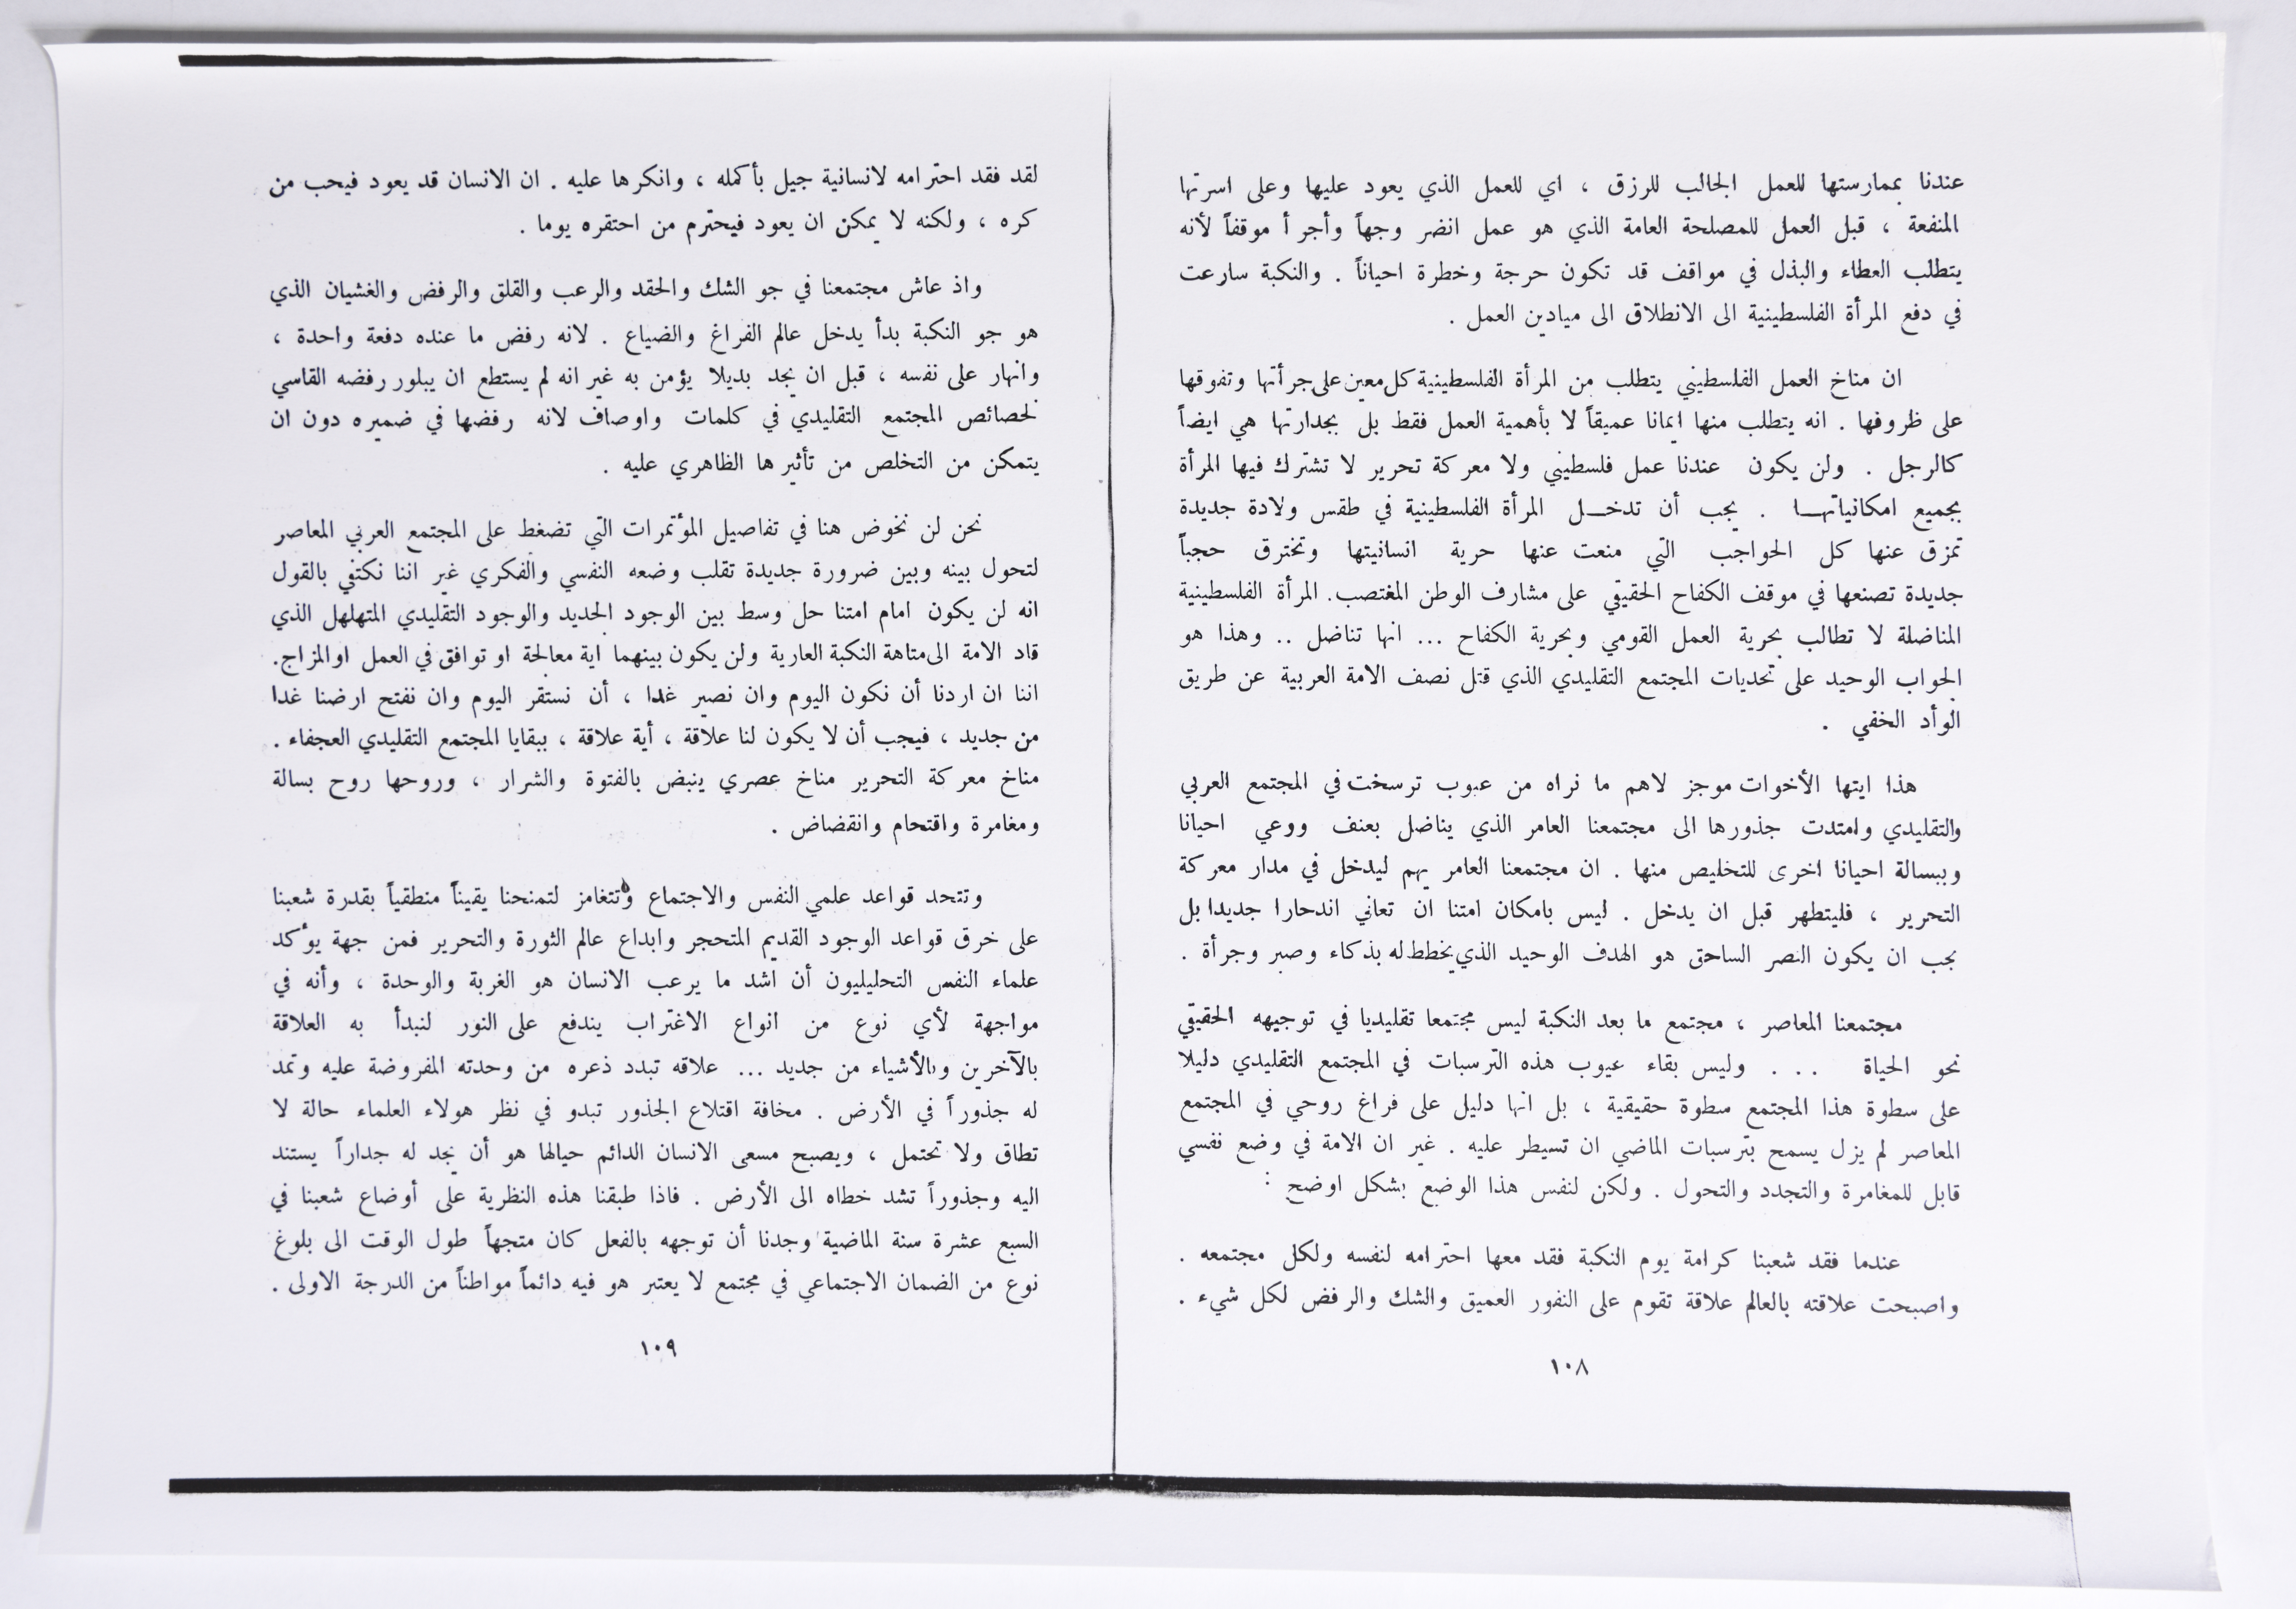 عندنا بممارستها للعمل الجالب للرزق ، اي للعمل الذي يعود عليها وعلى اسرتها
المنفعة ، قبل العمل للمصلحة العامة الذي هو عمل انضر وجهاً وأجرأ موقفاً لأنه
يتطلب العطاء والبذل في مواقف قد تكون حرجة وخطرة احياناً . والنكبة سارعت
في دفع المرأة الفلسطينية الى الانطلاق الى ميادين العمل .
ان مناخ العمل الفلسطيني يتطلب من المرأة الفلسطينية كل معين على جرأتها وتفوقها
على ظروفها . انه يتطلب منها ايمانا عميقاً لا بأهمية العمل فقط بل بجدارتها هي ايضاً
كالرجل . ولن يكون عندنا عمل فلسطيني ولا معركة تحرير لا تشترك فيها المرأة
بجميع امكانياتهـــا . يجب أن تدخـــل المرأة الفلسطينية في طقس ولادة جديدة
تمزق عنها كل الحواجب التي منعت عنها حرية انسانيتها وتخترق حجباً
جديدة تصنعها في موقف الكفاح الحقيقي على مشارف الوطن المغتصب. المرأة الفلسطينية
المناضلة لا تطالب بحرية العمل القومي وبحرية الكفاح ... انها تناضل .. وهذا هو
الجواب الوحيد على تحديات المجتمع التقليدي الذي قتل نصف الامة العربية عن طريق
الوأد الخفي .
هذا ايتها الأخوات موجز لاهم ما نراه من عيوب ترسخت في المجتمع العربي
والتقليدي وامتدت جذورها الى مجتمعنا العامر الذي يناضل بعنف ووعي احيانا
وببسالة احيانا اخرى للتخليص منها . ان مجتمعنا العامر يهم ليدخل في مدار معركة
التحرير ، فليتطهر قبل ان يدخل . ليس بامكان امتنا ان تعاني اندحارا جديدا بل
يجب ان يكون النصر الساحق هو الهدف الوحيد الذي يخطط له بذكاء وصبر وجرأة .
مجتمعنا المعاصر ، مجتمع ما بعد النكبة ليس مجتمعا تقليديا في توجيهه الحقيقي
نحو الحياة . . . وليس بقاء عيوب هذه الترسبات في المجتمع التقليدي دليلا
على سطوة هذا المجتمع سطوة حقيقية ، بل انها دليل على فراغ روحي في المجتمع
المعاصر لم يزل يسمح بترسبات الماضي ان تسيطر عليه . غير ان الامة في وضع نفسي
قابل للمغامرة والتجدد والتحول . ولكن لنفس هذا الوضع بشكل اوضح :
عندما فقد شعبنا كرامة يوم النكبة فقد معها احترامه لنفسه ولكل مجتمعه .
واصبحت علاقته بالعالم علاقة تقوم على النفور العميق والشك والرفض لكل شيء .
١٠٨
لقد فقد احترامه لانسانية جيل بأكمله ، وانكرها عليه . ان الانسان قد يعود فيحب من
كره ، ولكنه لا يمكن ان يعود فيحترم من احتقره يوما .
واذ عاش مجتمعنا في جو الشك والحقد والرعب والقلق والرفض والغشيان الذي
هو جو النكبة بدأ يدخل عالم الفراغ والضياع . لانه رفض ما عنده دفعة واحدة ،
وانهار على نفسه ، قبل ان يجد بديلا يؤمن به غير انه لم يستطع ان يبلور رفضه القاسي
لخصائص المجتمع التقليدي في كلمات واوصاف لانه رفضها في ضميره دون ان
يتمكن من التخلص من تأثيرها الظاهري عليه .
نحن لن نخوض هنا في تفاصيل المؤتمرات التي تضغط على المجتمع العربي المعاصر
لتحول بينه وبين ضرورة جديدة تقلب وضعه النفسي والفكري غير اننا نكتفي بالقول
انه لن يكون امام امتنا حل وسط بين الوجود الجديد والوجود التقليدي المتهلهل الذي
قاد الامة الى متاهة النكبة العارية ولن يكون بينهما اية معالجة او توافق في العمل او المزاج.
اننا ان اردنا أن نكون اليوم وان نصير غدا ، أن نستقر اليوم وان نفتح ارضنا غدا
من جديد ، فيجب أن لا يكون لنا علاقة ، أية علاقة ، ببقايا المجتمع التقليدي العجفاء .
مناخ معركة التحرير مناخ عصري ينبض بالفتوة والشرار ، وروحها روح بسالة
ومغامرة واقتحام وانقضاض .
وتتحد قواعد علمي النفس والاجتماع وتتغامز لتمنحنا يقيناً منطقياً بقدرة شعبنا
على خرق قواعد الوجود القديم المتحجر وابداع عالم الثورة والتحرير فمن جهة يؤكد
علماء النفس التحليليون أن اشد ما يرعب الانسان هو الغربة والوحدة ، وأنه في
مواجهة لأي نوع من انواع الاغتراب يندفع على النور لنبدأ به العلاقة
بالآخرين وبالأشياء من جديد ... علاقه تبدد ذعره من وحدته المفروضة عليه وتمد
له جذوراً في الأرض . مخافة اقتلاع الجذور تبدو في نظر هولاء العلماء حالة لا
تطاق ولا تحتمل ، ويصبح مسعى الانسان الدائم حيالها هو أن يجد له جداراً يستند
اليه وجذوراً تشد خطاه الى الأرض . فاذا طبقنا هذه النظرية على أوضاع شعبنا في
السبع عشرة سنة الماضية وجدنا أن توجهه بالفعل كان متجهاً طول الوقت الى بلوغ
نوع من الضمان الاجتماعي في مجتمع لا يعتبر هو فيه دائماً مواطناً من الدرجة الاولى .
١٠٩